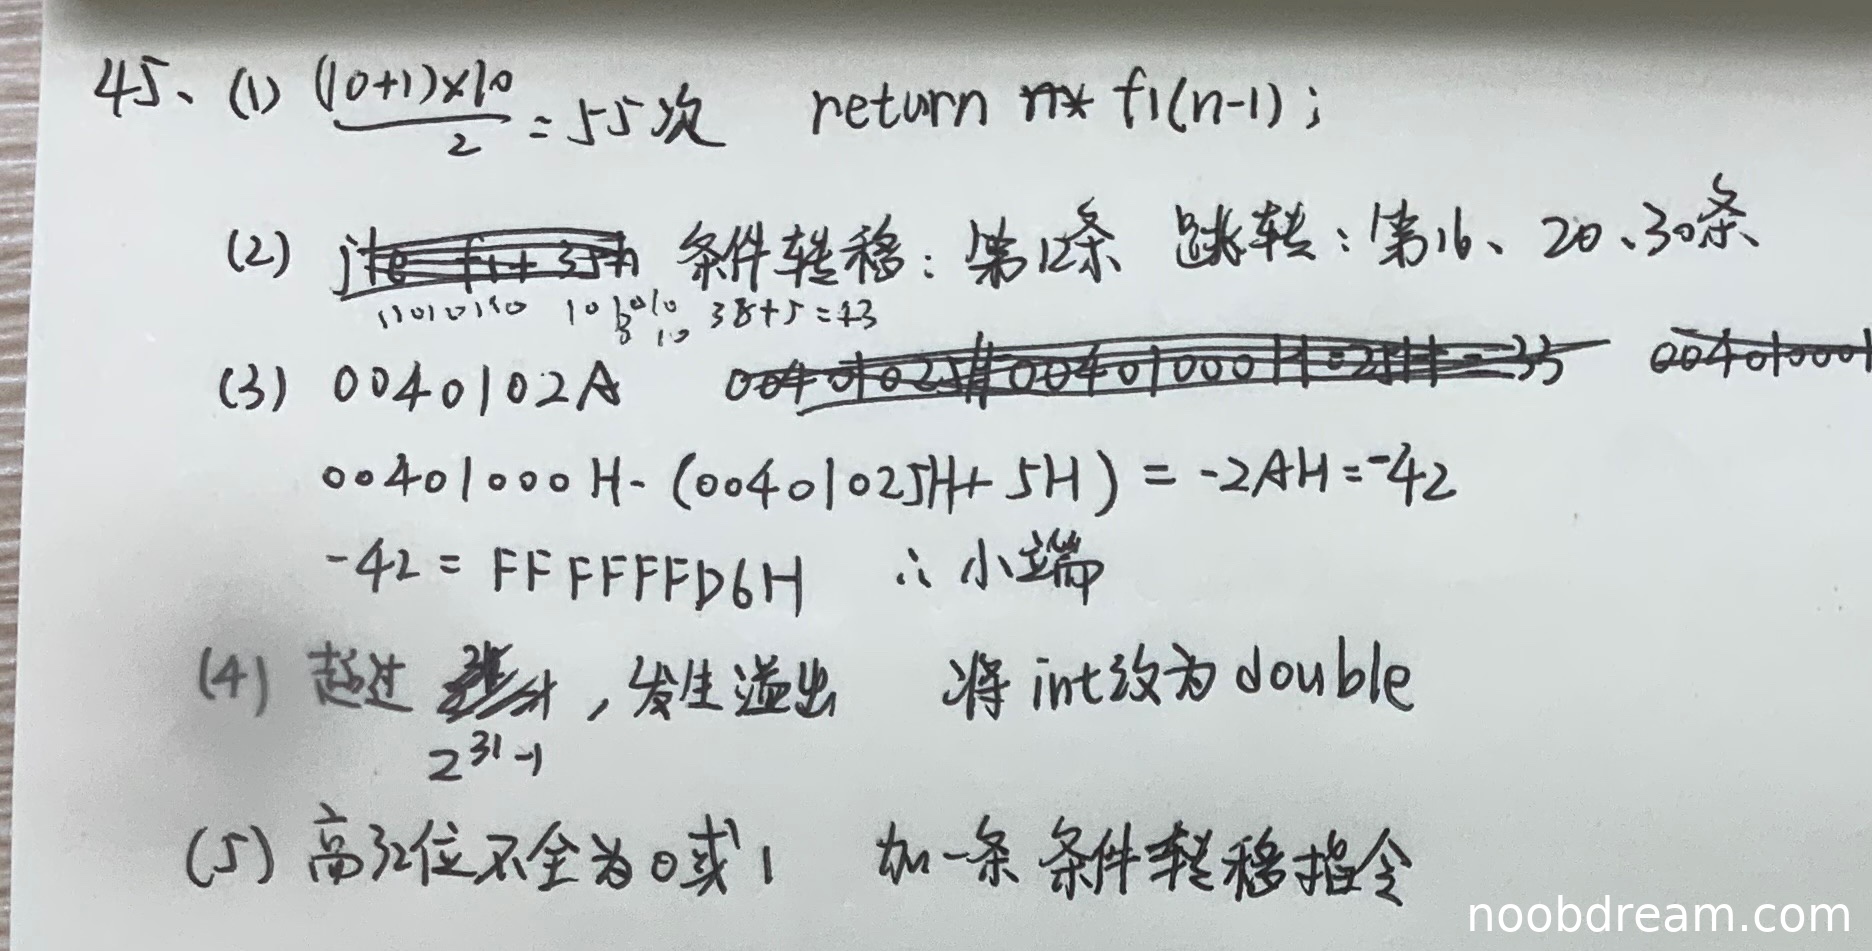 45、(1) (10+1)×10/2 = 55次 return n* f1(n-1);
(2) 条件转移：第12条 跳转：第16、20、30条
11010110 101010 38+5=43
8 10
(3) 0040102A 00401025H 00401000H 00401000
00401000H-(00401025H+5H) = -2AH=-42
-42 = FFFFFFD6H ∴小端
(4) 超过 ，发生溢出 将int改为double
2^31-1
(5) 高32位不全为0或1 加一条条件转移指令
noobdream.com